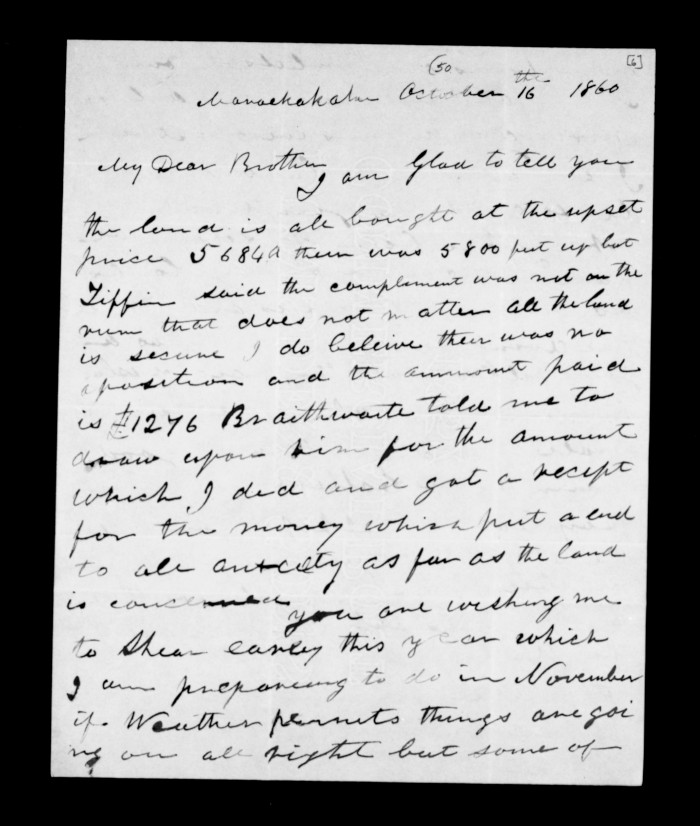 (50
[6]
October 16 the 1860
My Dear Brother
I am Glad to tell you
the land is all bought at the upset
price 5684a there was 5800 put up but
Tiffin said the complement was not on the
run that does not matter all the land
is secure I do beleive their was no
oposition and the ammount paid
is £1276 Braithwaite told me to
draw upon him for the amount
which I did and got a recipt
for the money which put a end
to all anxiety as far as the land
is concerned
you are wishing me
to Shear earley this year which
I am prepareing to do in November
if Weather permits things are goi
ng on all right but some of